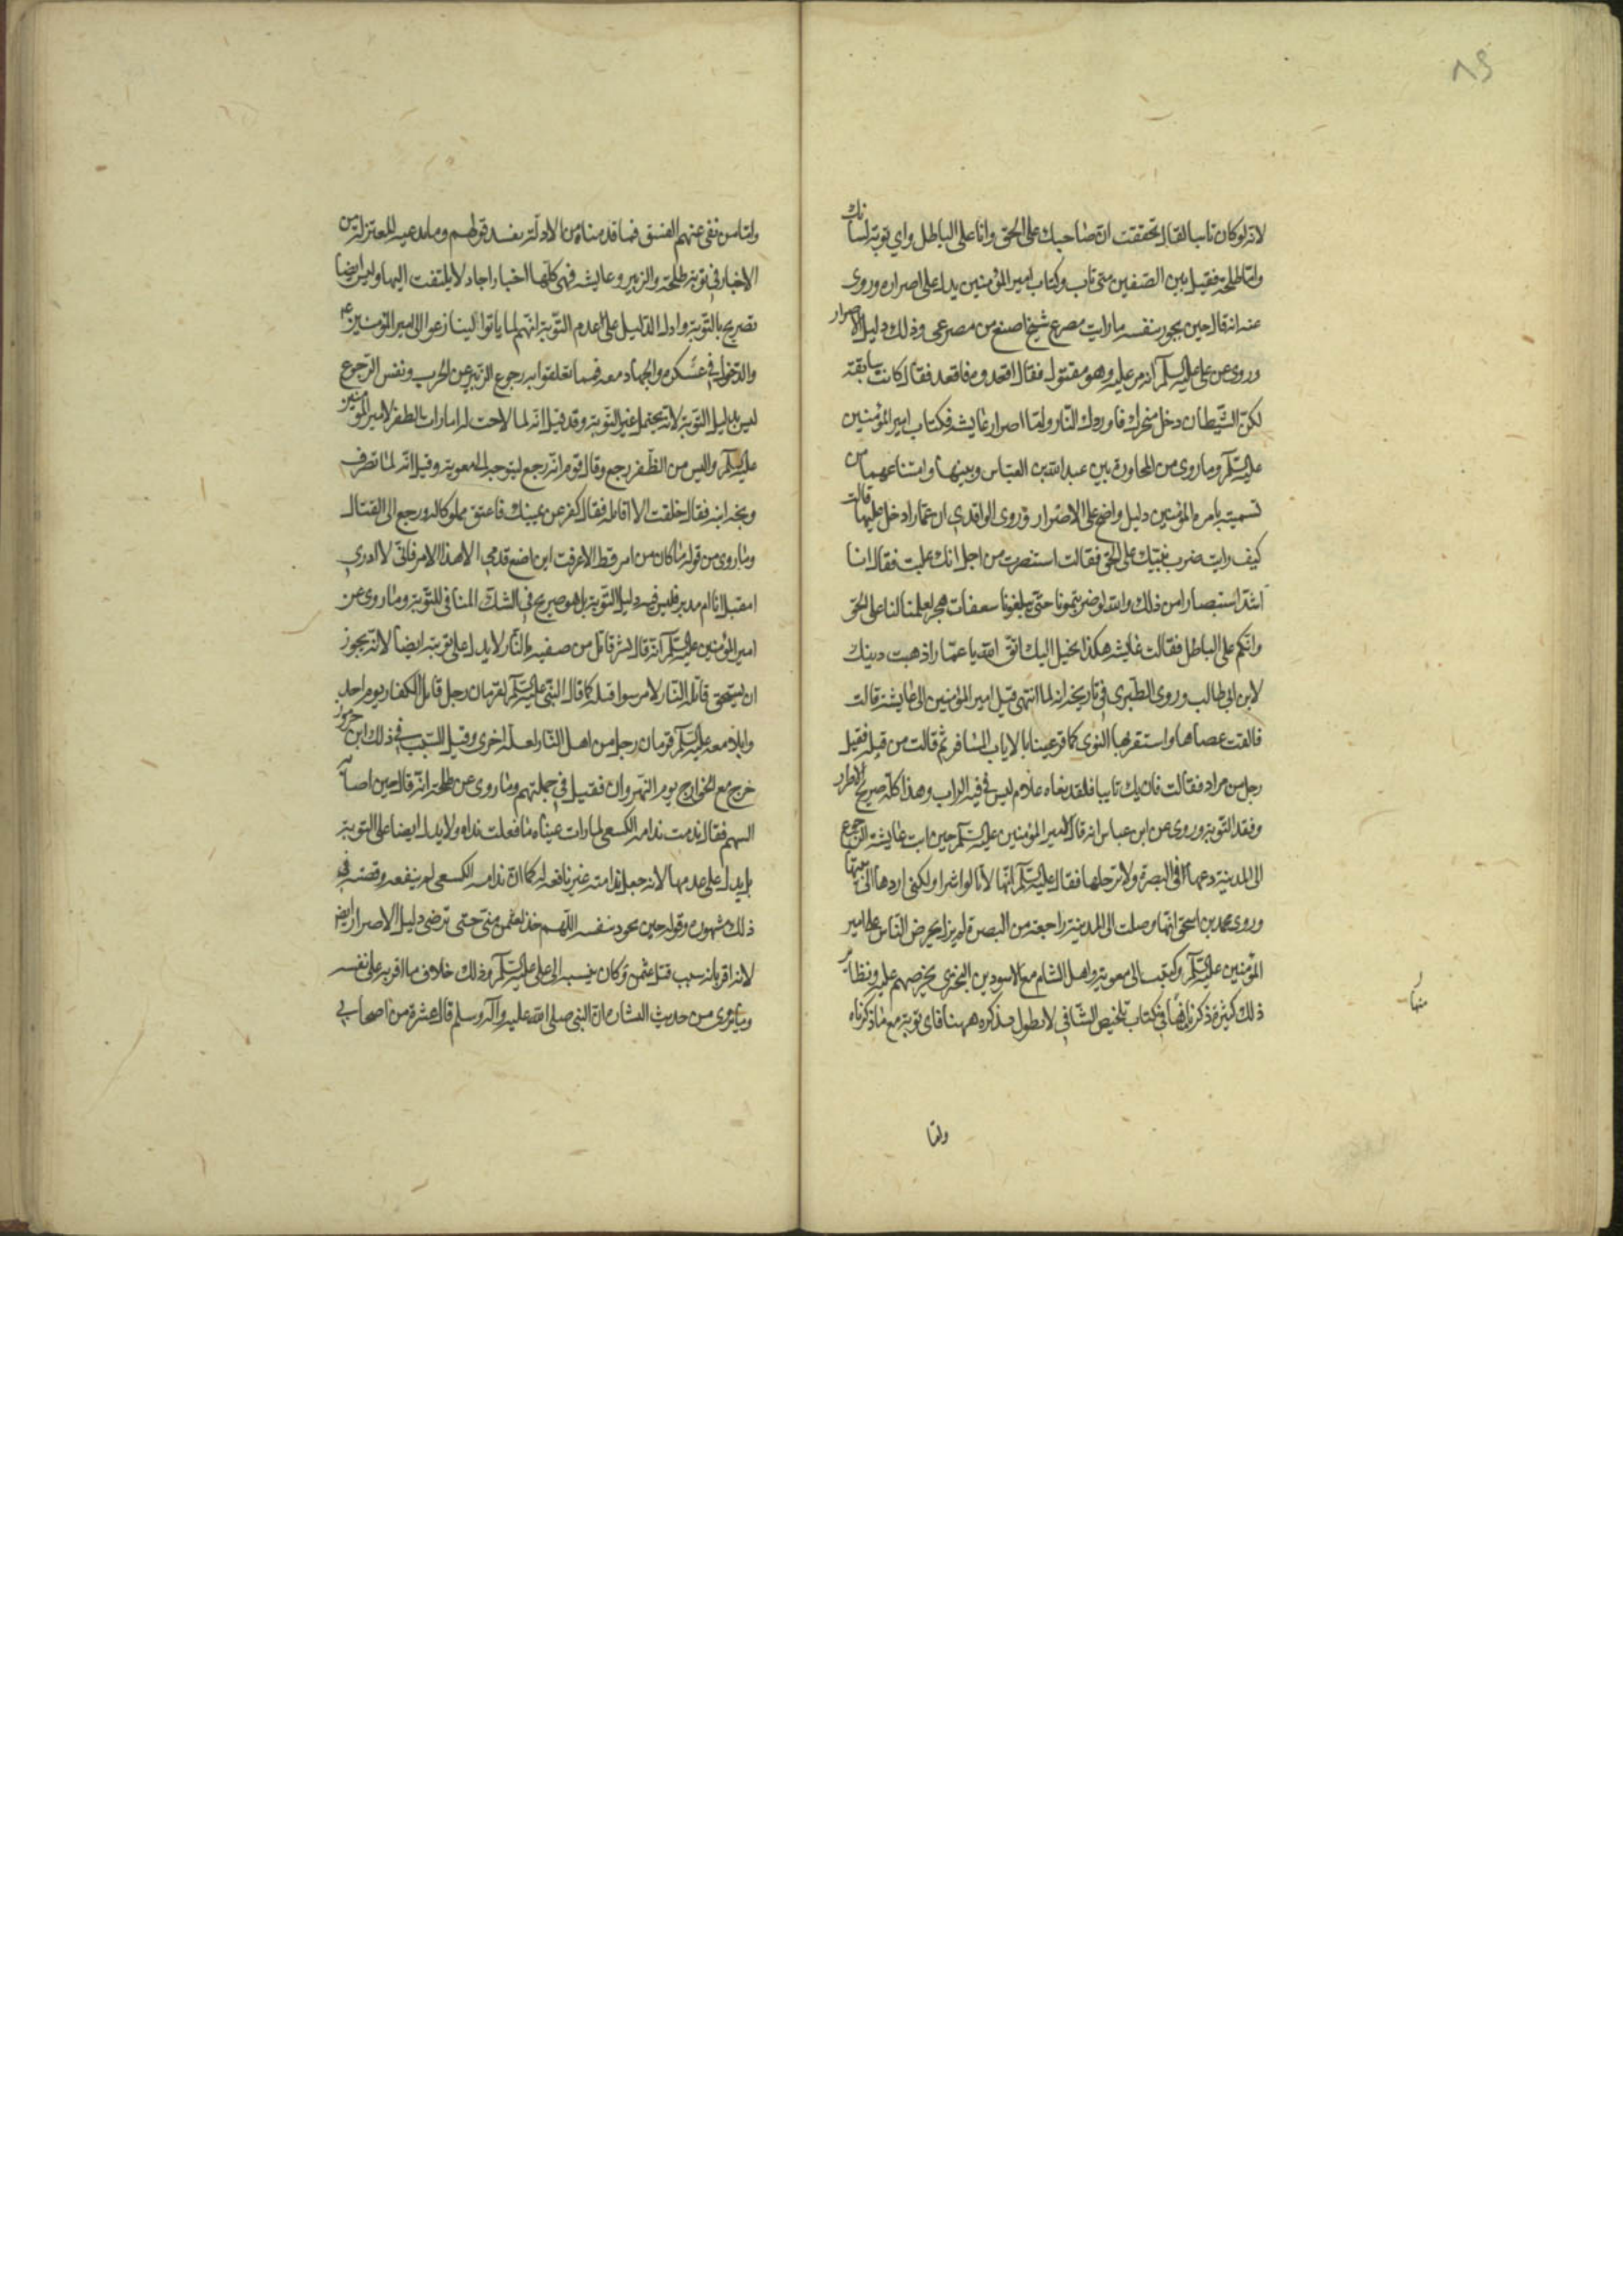 ٨٩
لانه لو كان تاب لقال تحققت ان صاحبك على الحق وانا على الباطل واي توبة لسانك
واما طلحة فقتل بين الصفين متى تاب وكتاب امير المؤمنين يدل على اصراره وروى
عنه انه قال حين يجود بنفسه ما رايت مصرع شيخ اضيع من مصرعي وذلك دليل الاصرار
وروى عن علي عليه السلم انه مر عليه وهو مقتول فقال اقعدوه فاقعد فقال كانت سابقة
لكن الشيطان دخل منخرك فاوردك النار واما اصرار عايشة فكتاب امير المؤمنين
عليه السلم وما روى من المحاورة بين عبد الله بن العباس وبينها وامتناعهما من
تسميته بامرة المؤمنين دليل واضح على الاصرار وروى الواقدي ان عمارا دخل عليها قالت
كيف رايت ضرب بنيك على الحق فقالت استبصرت من اجل انك غلبت فقال انا
اشد استبصارا من ذلك والله لو ضربتمونا حتى تبلغونا سعفات هجر لعلمنا انا على الحق
وانكم على الباطل فقالت عايشة هكذا يخيل اليك اتق الله يا عمار اذهبت دينك
لابن ابي طالب وروى الطبري في تاريخه انه لما انتهى قتل امير المؤمنين الى عايشة قالت
فالقت عصاها واستقر بها النوى كما قر عينا بالاياب المسافر ثم قالت من قتله فقيل
رجل من مراد فقالت فان يك نايبا فلقد نعاه غلام ليس في فيه التراب وهذا كله صريح الاصرار
وفقد التوبة وروى عن ابن عباس انه قال لامير المؤمنين عليه السلم حين ابت عايشة الرجوع
الى المدينة دعها في البصرة ولا ترحلها فقال عليه السلم انها لا تالوا شرا ولكني اردها الى بيتها
وروى محمد بن اسحق انها وصلت الى المدينة راجعة من البصرة لم يزل يحرض الناس على امير
المؤمنين عليه السلم وكتبت الى معوية واهل الشام مع الاسود بن البختري يحرضهم عليه ونظاير
ذلك كثيرة ذكرناها في كتاب تلخيص الشافي لا نطول بذكره ههنا فاي توبة مع ما ذكرناه
واما
واما من نفى عنهم الفسق فما قدمناه من الادلة يفسد قولهم وما يدعيه المعتزلة من
الاخبار في توبة طلحة والزبير وعايشة فهي كلها اخبار احاد لا يلتفت اليها وليس ايضا
تصريح بالتوبة وادل الدليل على عدم التوبة انهم لما ياتوا الينا زعوا الى امير المؤمنين ع
والدخول في عسكره والجهاد معه فما تعلقوا به رجوع الزبير عن الحرب ونفس الرجوع
ليس بدليل التوبة لانه يحتمل غير التوبة وقد قيل انه لما لاحت له امارات بالظفر لامير المؤمنين
عليه السلم واليس من الظفر رجع وقال قوم انه رجع ليتوجه الى معوية وقيل انه لما تصرف
وبخه ابنه فقال حلفت الا اقاتله فقال كفر عن يمينك فاعتق مملوكا له ورجع الى القتال
وما روى من قوله ما كان من امر قط الا عرفت اين اضع قدمي الا هذا الامر فاني لا ادري
امقبل انا ام مدبر فليس فيه دليل التوبة بل هو صريح في الشك المنافي للتوبة وما روى عن
امير المؤمنين عليه السلم انه قال بشر قاتل بن صفية بالنار لا يدل على توبته ايضا لانه يجوز
ان يستحق قاتله النار لامر سوا قتله كما قال النبي عليه السلم لقزمان رجل قاتل الكفار يوم احد
وابلا معه عليه السلم قزمان رجل من اهل النار لعلة اخرى وقيل السبب في ذلك ابن جرموز
خرج مع الخوارج يوم النهروان فقتل في جملتهم وما روى عن طلحة انه قال حين اصابه
السهم فقال ندمت ندامة الكسعي لما رات عيناه ما فعلت نداه ولا يدل ايضا على التوبة
بل يدل على عدمها لانه جعل ندامته غير نافعة له كما ان ندامة الكسعي لم ينفعه وقصته في
ذلك مشهورة وقوله حين يجود بنفسه اللهم خذ لعثمن مني حتى ترضى دليل الاصرار ايضا
لانه اقر بانه سبب قتل عثمن وكان ينسبه الى علي عليه السلم وذلك خلاف ما اقر به على نفسه
وما روى من حديث البشارة ان النبي صلى الله عليه وآله وسلم قال عشرة من اصحابي